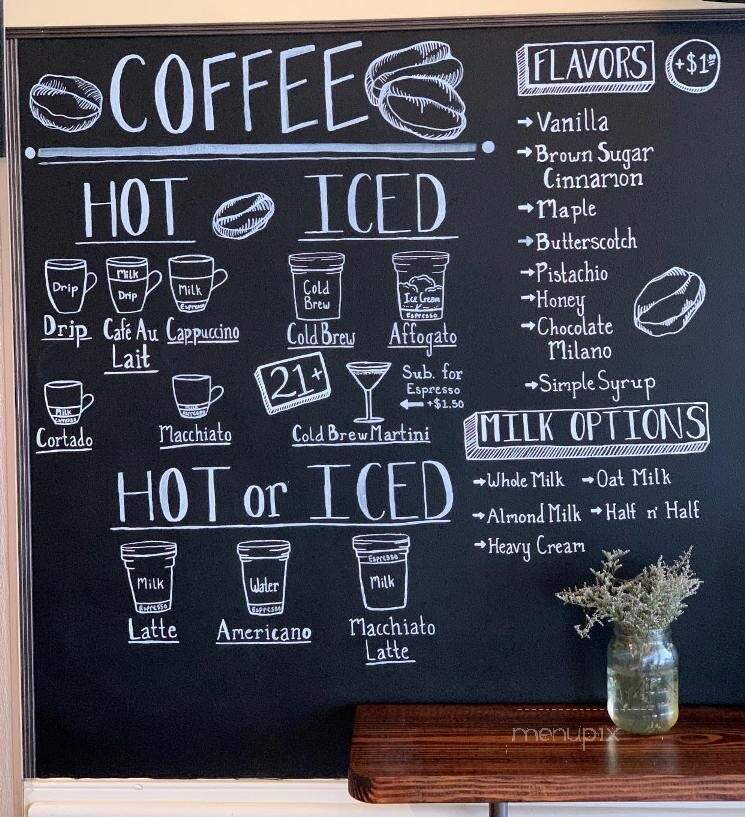 COFFEE
HOT
ICED
Drip
Milk
Drip
Milk
Espresso
Cold
Brew
Ice Cream
Espresso
Drip
Café Au
Lait
Cappuccino
Cold Brew
Affogato
Milk
Espresso
Milk
Espresso
21+
Sub. for
Espresso
+$1.50
Cortado
Macchiato
Cold Brew Martini
HOT or ICED
Milk
Espresso
Water
Espresso
Espresso
Milk
Latte
Americano
Macchiato
Latte
FLAVORS
+$1.00
Vanilla
Brown Sugar
Cinnamon
Maple
Butterscotch
Pistachio
Honey
Chocolate
Milano
Simple Syrup
MILK OPTIONS
Whole Milk
Oat Milk
Almond Milk
Half n' Half
Heavy Cream
menupix